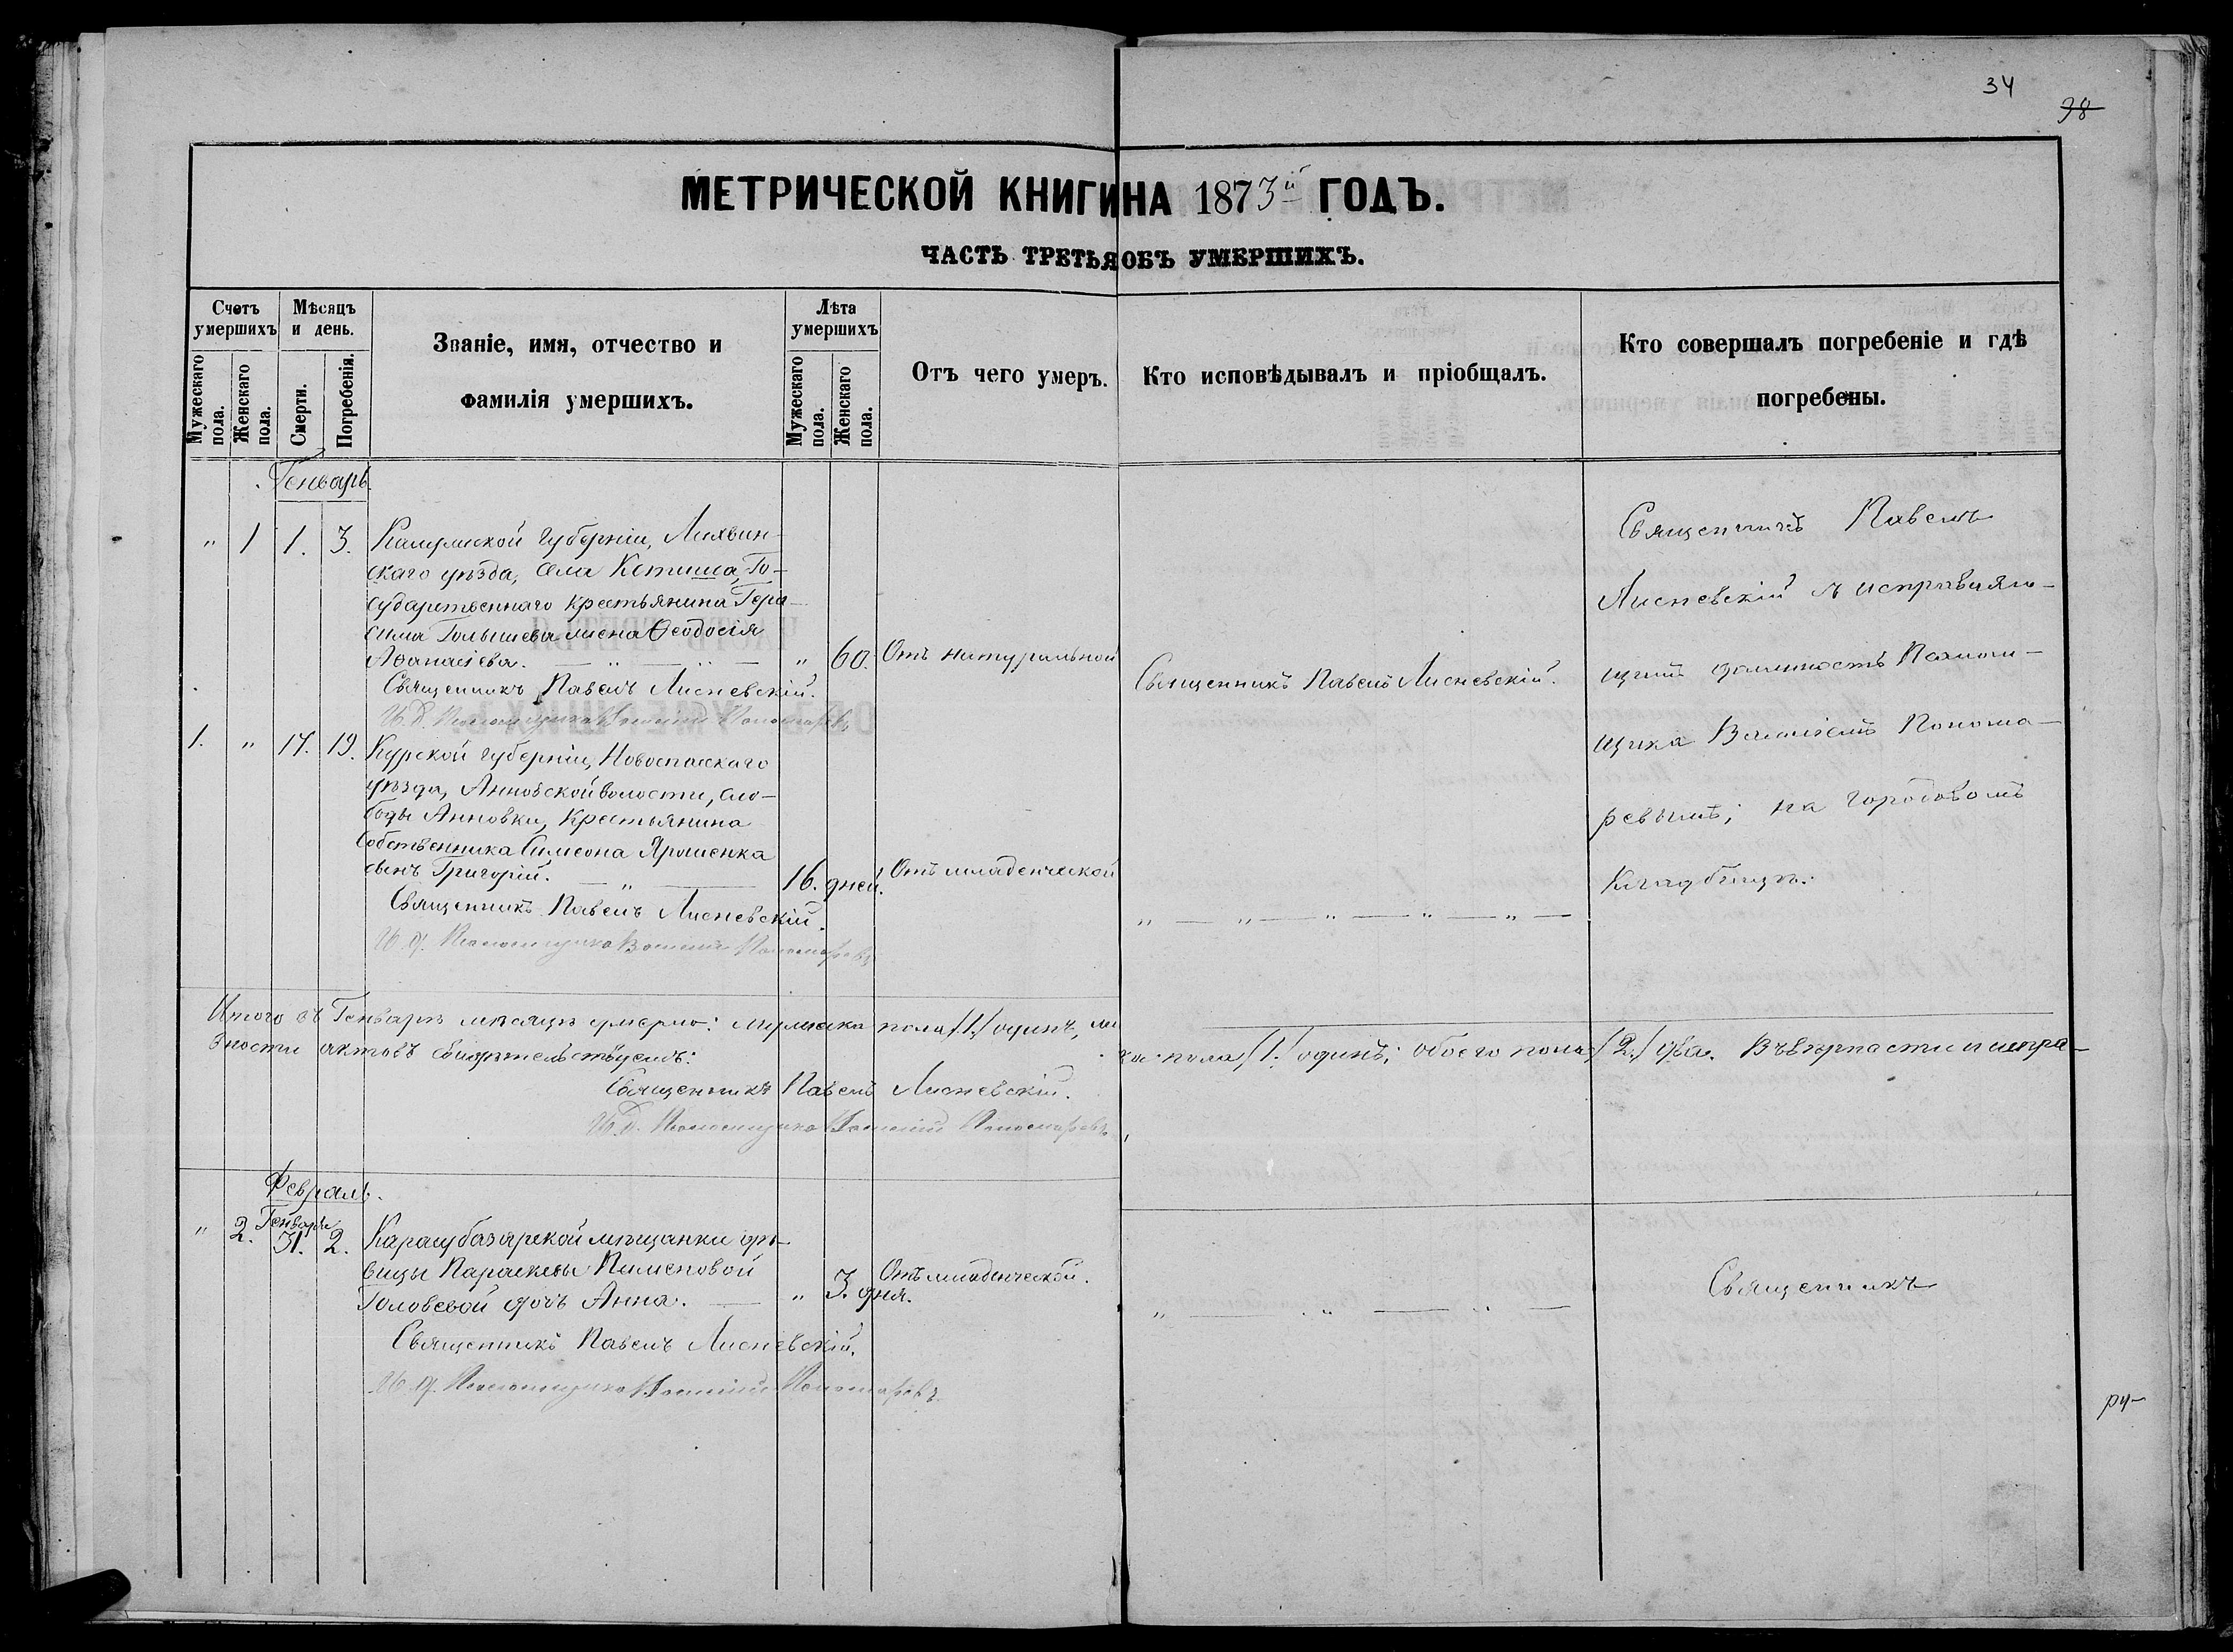 34
98
МЕТРИЧЕСКОЙ КНИГИ НА 1873й ГОДЪ.
ЧАСТЬ ТРЕТЬЯ ОБЪ УМЕРШИХЪ.
Счетъ умершихъ
Мѣсяцъ и день.
Званіе, имя, отчество и
фамилія умершихъ.
Лѣта умершихъ
Отъ чего умеръ.
Кто исповѣдывалъ и пріобщалъ.
Кто совершалъ погребеніе и гдѣ
погребены.
Мужескаго пола.
Женскаго пола.
Смерти.
Погребенія.
Мужескаго пола.
Женскаго пола.
Генварь.
" 1 1. 3. Калужской губерніи, Лихвин-
скаго уѣзда, села Кетиша, Го-
сударственнаго крестьянина Гера-
сима Голышева жена Ѳеодосія
Аѳанасіева. — " — " — " 60. Отъ натуральной
Священникъ Павелъ Лисневскій.
Священникъ Павелъ Лисневскій.
И. Д. Псаломщика Василій Пономаревъ
1. " 17. 19. Курской губерніи, Новооскол­скаго
уѣзда, Анновской волости, сло-
боды Анновки, Крестьянина
Собственника Симеона Ярошенка
сынъ Григорій. — " — 16. дней. Отъ младенческой
Священникъ Павелъ Лисневскій.
" — " — " — " — " —
И. д. Псаломщика Василій Пономаревъ
Священникъ Павелъ
Лисневскій съ исправляю-
щимъ должность Псалом-
щика Василіемъ Понома-
ревымъ; на городовомъ
кладбищѣ.
Итого въ Генварѣ мѣсяцѣ умерло: мужеска пола /1./ одинъ, жен
ска пола /1./ одинъ; обоего пола /2./ два. Въ вѣрности и испра-
вности актовъ свидѣтельствуемъ:
Священникъ Павелъ Лисневскій.
И. Д. Псаломщика Василій Пономаревъ
Февраль.
Генваря
" 2. 31. 2. Карасубазарской мѣщанки дѣ-
вицы Параскевы Пименовой
Головевой дочь Анна. — " 3. дня. Отъ младенческой.
" — " — " —
Священникъ
Священникъ Павелъ Лисневскій.
И. д. Псаломщика Василій Пономаревъ
ру-